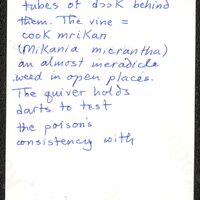 tubes of dook behind
them. The vine =
cook mrikan
(Mikania micrantha)
an almost
weed in open places.
The quiver holds
darts to test
the poison's
consistency with